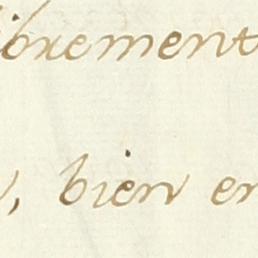 ibrement
, bien en